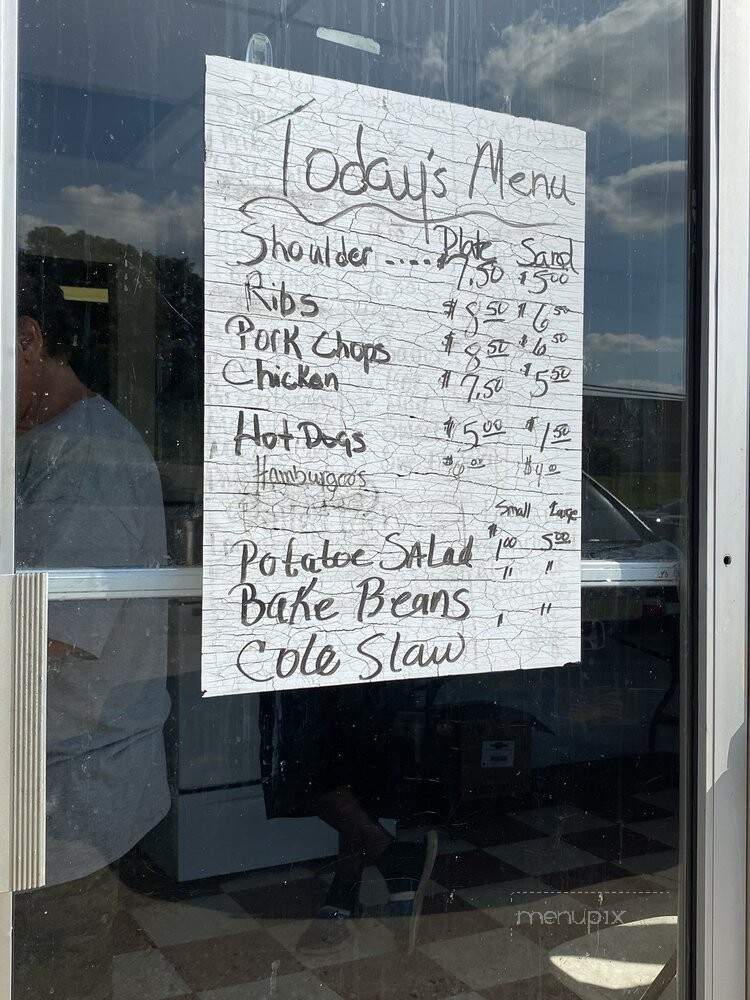 Today's Menu
Plate Sand
Shoulder .... $7.50 $5.00
Ribs $8.50 $6.50
Pork Chops $8.50 $6.50
Chicken $7.50 $5.50
Hot Dogs $5.00 $1.50
Hamburgers $6.00 $4.00
Small Large
Potatoe SALad $1.00 5.00
Bake Beans " "
Cole Slaw " "
menupix